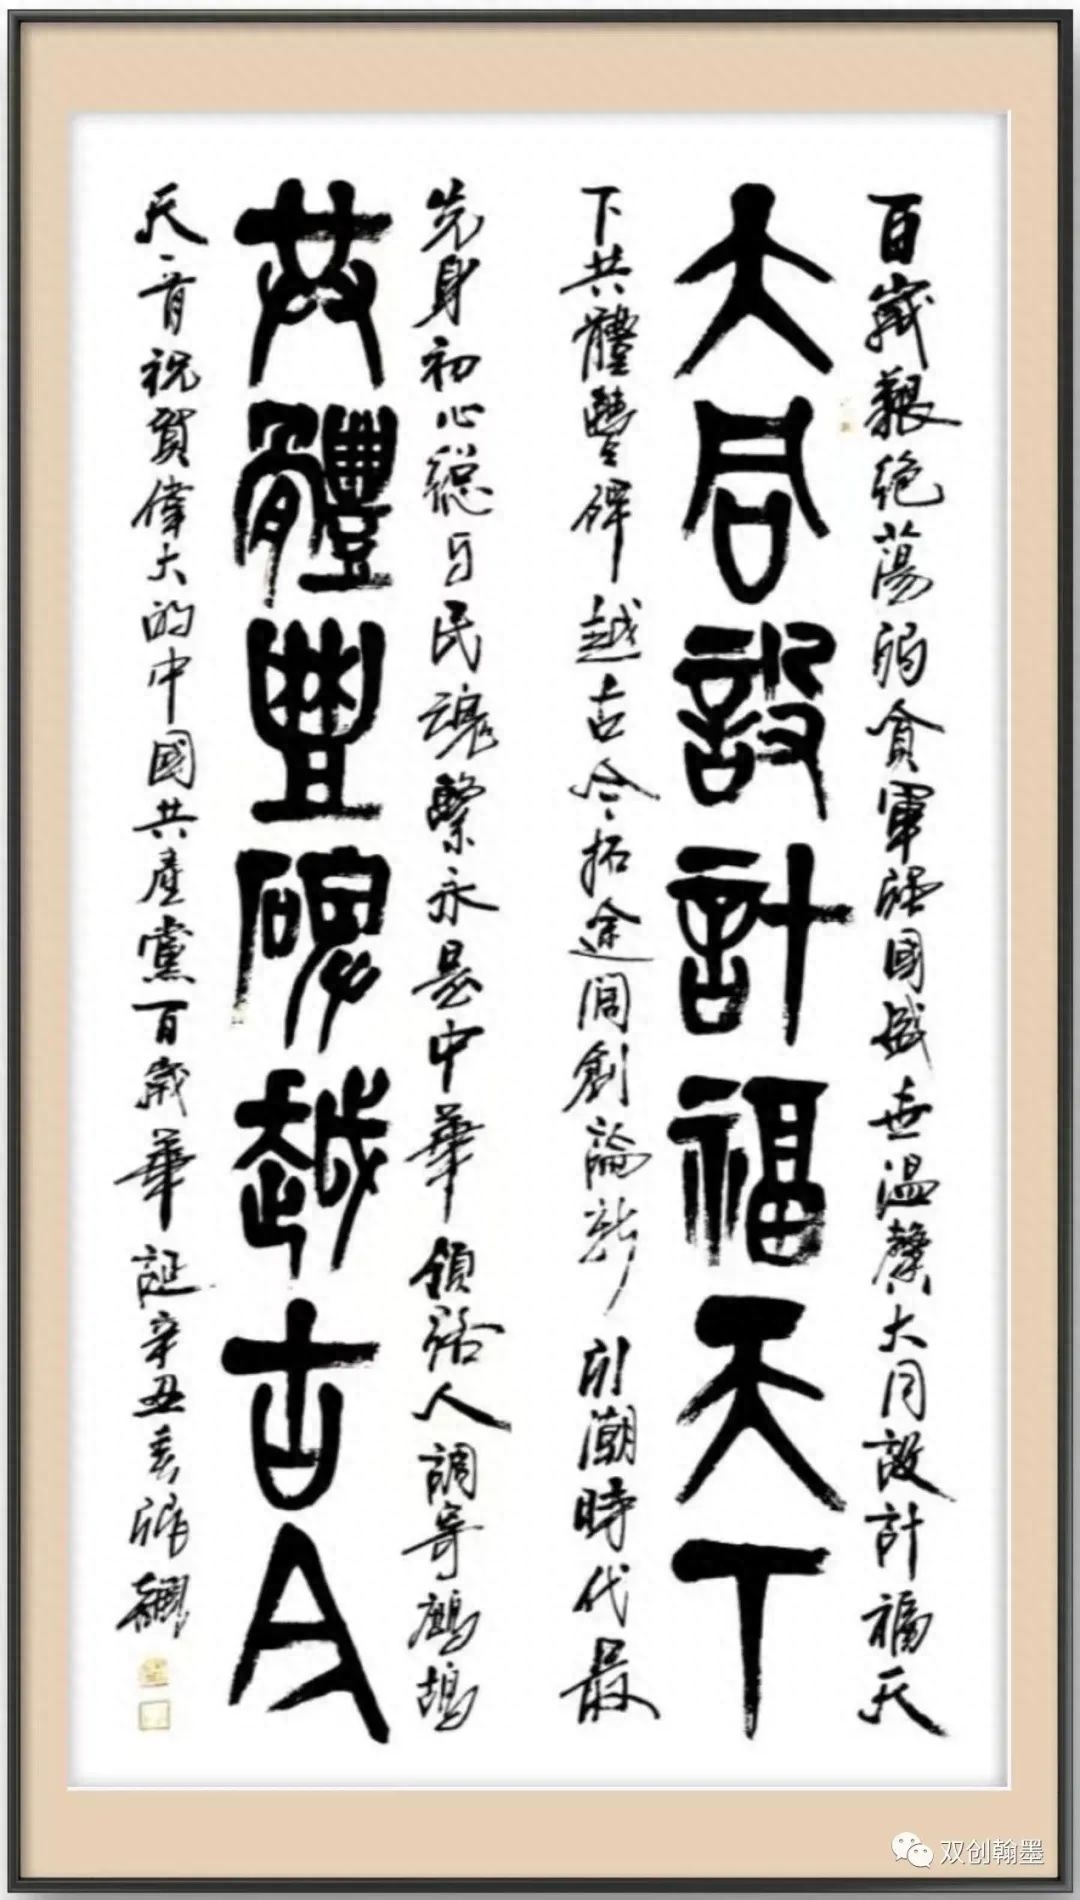 百歲艱絕蕩弱貧軍強國盛世溫馨大同設計福天
大同設計福天下
下共體豐碑越古今拓途闊創論新引潮時代最
先身初心總与民魂繫永是中華領路人調寄鷓鴣
共體豐碑越古今
天一首祝賀偉大的中國共產黨百歲華誕辛丑春
双创翰墨